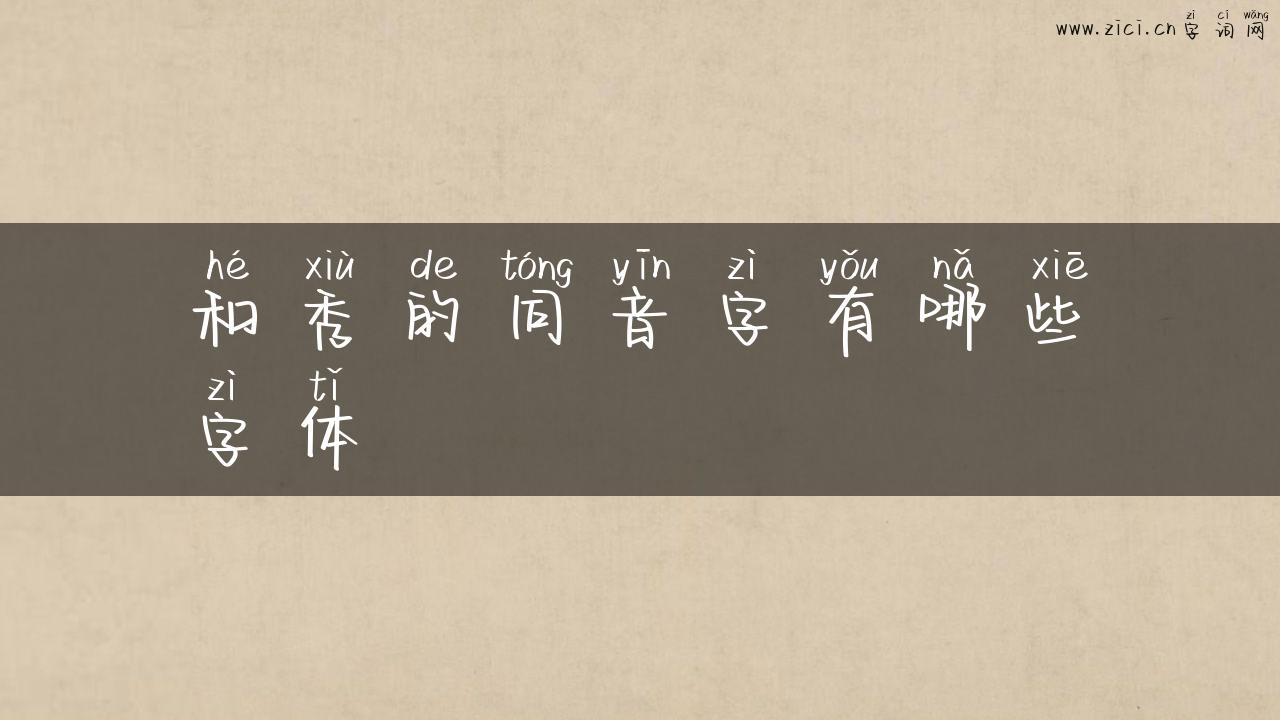 zì cí wǎng
www.zici.cn 字词网
hé xiù de tóng yīn zì yǒu nǎ xiē
和秀的同音字有哪些
zì tǐ
字体